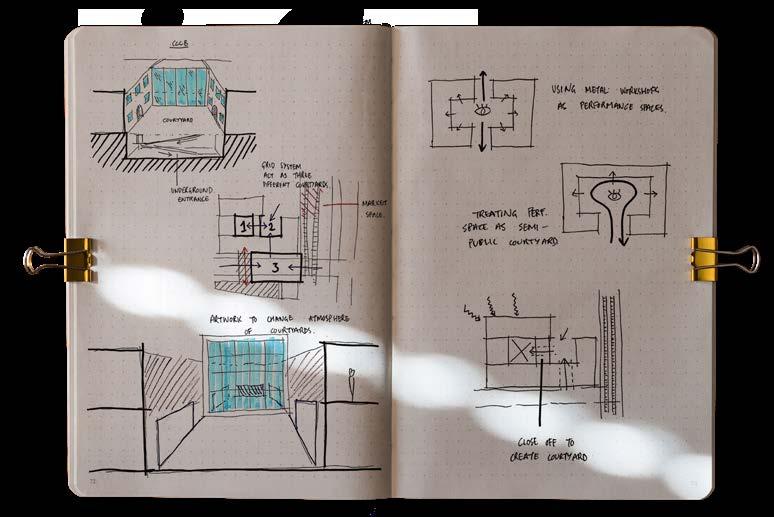 CCCB
COURTYARD
UNDERGROUND
ENTRANCE
GRID SYSTEM
ACT AS THREE
DIFFERENT COURTYARDS.
MARKET
SPACE.
1
2
3
ARTWORK TO CHANGE ATMOSPHERE
OF COURTYARDS.
72
USING METAL WORKSHOPS
AS PERFORMANCE SPACES.
TREATING PERF.
SPACE AS SEMI-
PUBLIC COURTYARD
CLOSE OFF TO
CREATE COURTYARD